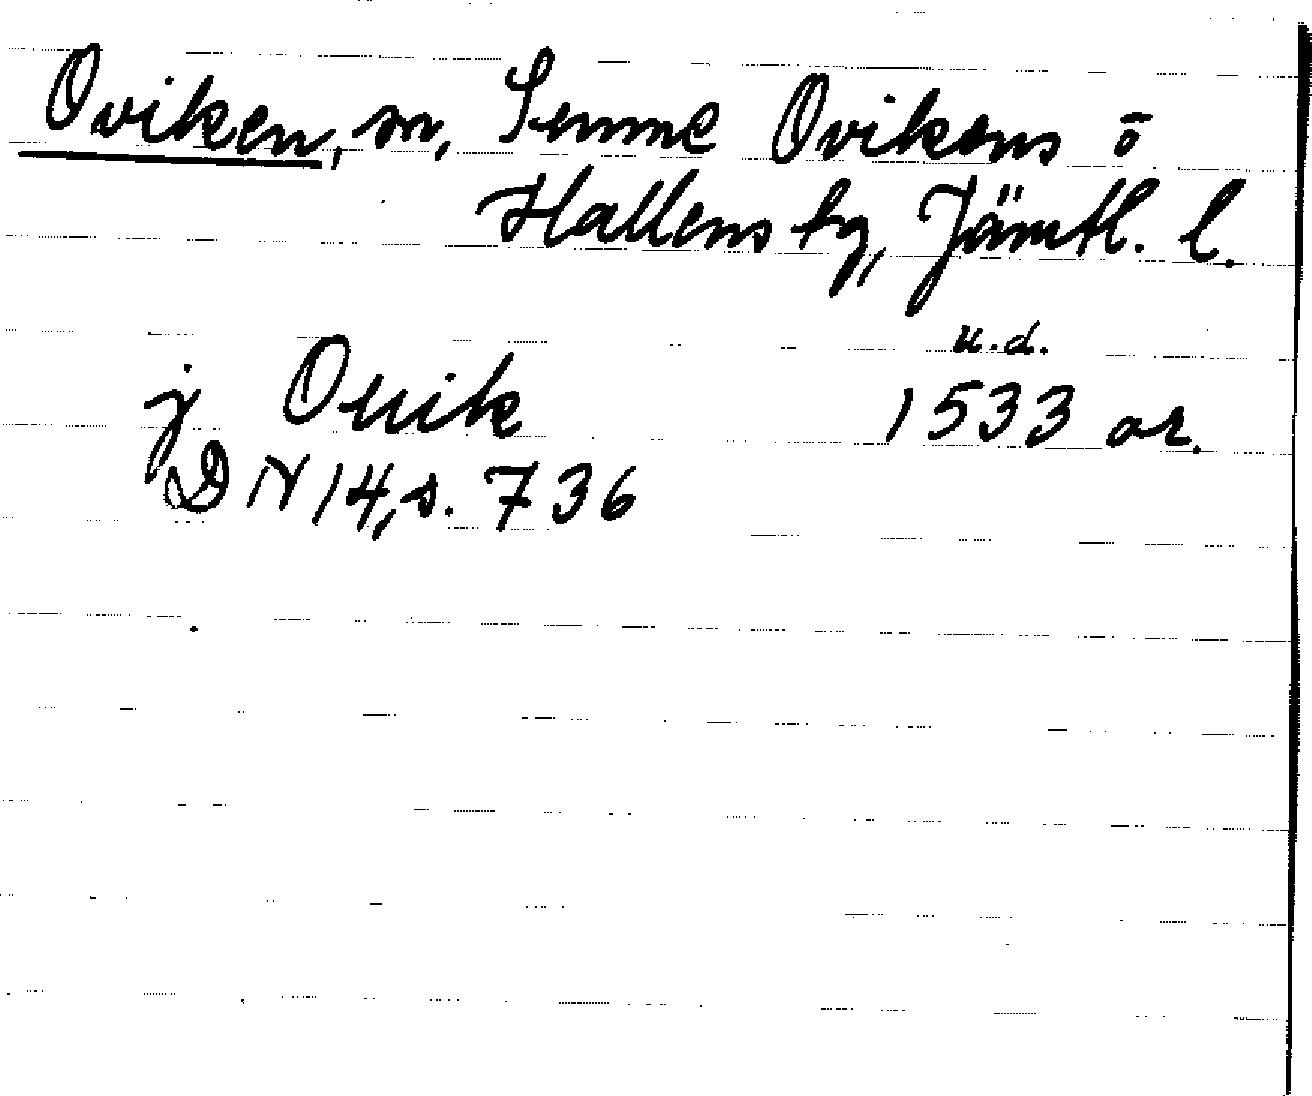 Oviken, sn, Sunne Ovikens o
Hallens tg, Jämtl. l.
u.d.
j Ouik 1533 or.
DN 14, s. 736